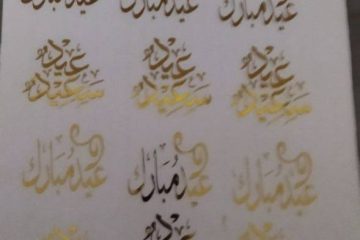 عيد مبارك عيد مبارك عيد مبارك
عيد سعيد عيد سعيد عيد سعيد
عيد مبارك عيد مبارك عيد مبارك
عيد عيد عيد